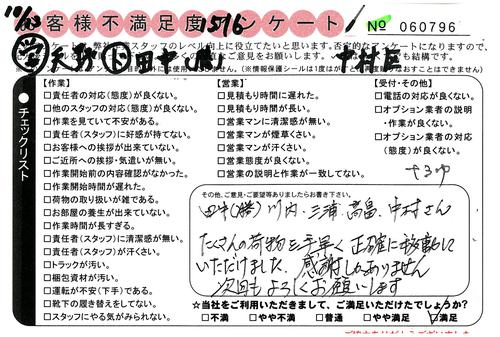 お客様不満足度 1516 アンケート
№ 060796
中村
のスタッフのレベル向上に役立てたいと思います。否定的なアンケートになりますので、
チェックリスト
【作業】
□責任者の対応(態度)が良くない。
□他のスタッフの対応(態度)が良くない。
□作業を見ていて不安がある。
□責任者(スタッフ)に好感が持てない。
□お客様への挨拶が出来ていない。
□ご近所への挨拶・気遣いが無い。
□作業開始前の内容確認がなかった。
□作業開始時間が遅れた。
□荷物の取り扱いが雑である。
□お部屋の養生が出来ていない。
□作業時間が長すぎる。
□責任者(スタッフ)に清潔感が無い。
□責任者(スタッフ)が汗くさい。
□トラックが汚い。
□梱包資材が汚い。
□運転が不安(下手)である。
□靴下の履き替えをしてない。
□スタッフにやる気がみられない。
【営業】
□見積もり時間に遅れた。
□見積もり時間が長い。
□営業マンに清潔感が無い。
□営業マンが煙草くさい。
□営業マンが汗くさい。
□営業態度が良くない。
□営業の説明と作業が一致してない。
【受付・その他】
□電話の対応が良くない。
□オプション業者の説明
・作業が良くない。
□オプション業者の対応
(態度)が良くない。
その他、ご意見・ご要望等ありましたらお書き下さい。
田中(勝)川内、三浦、高畠、中村さん
たくさんの荷物を手早く正確に移動して
いただけました。感謝しかありません
次回もよろしくお願いします
☆当社をご利用いただきまして、ご満足いただけたでしょうか?
□不満 □やや不満 □普通 □やや満足 □満足